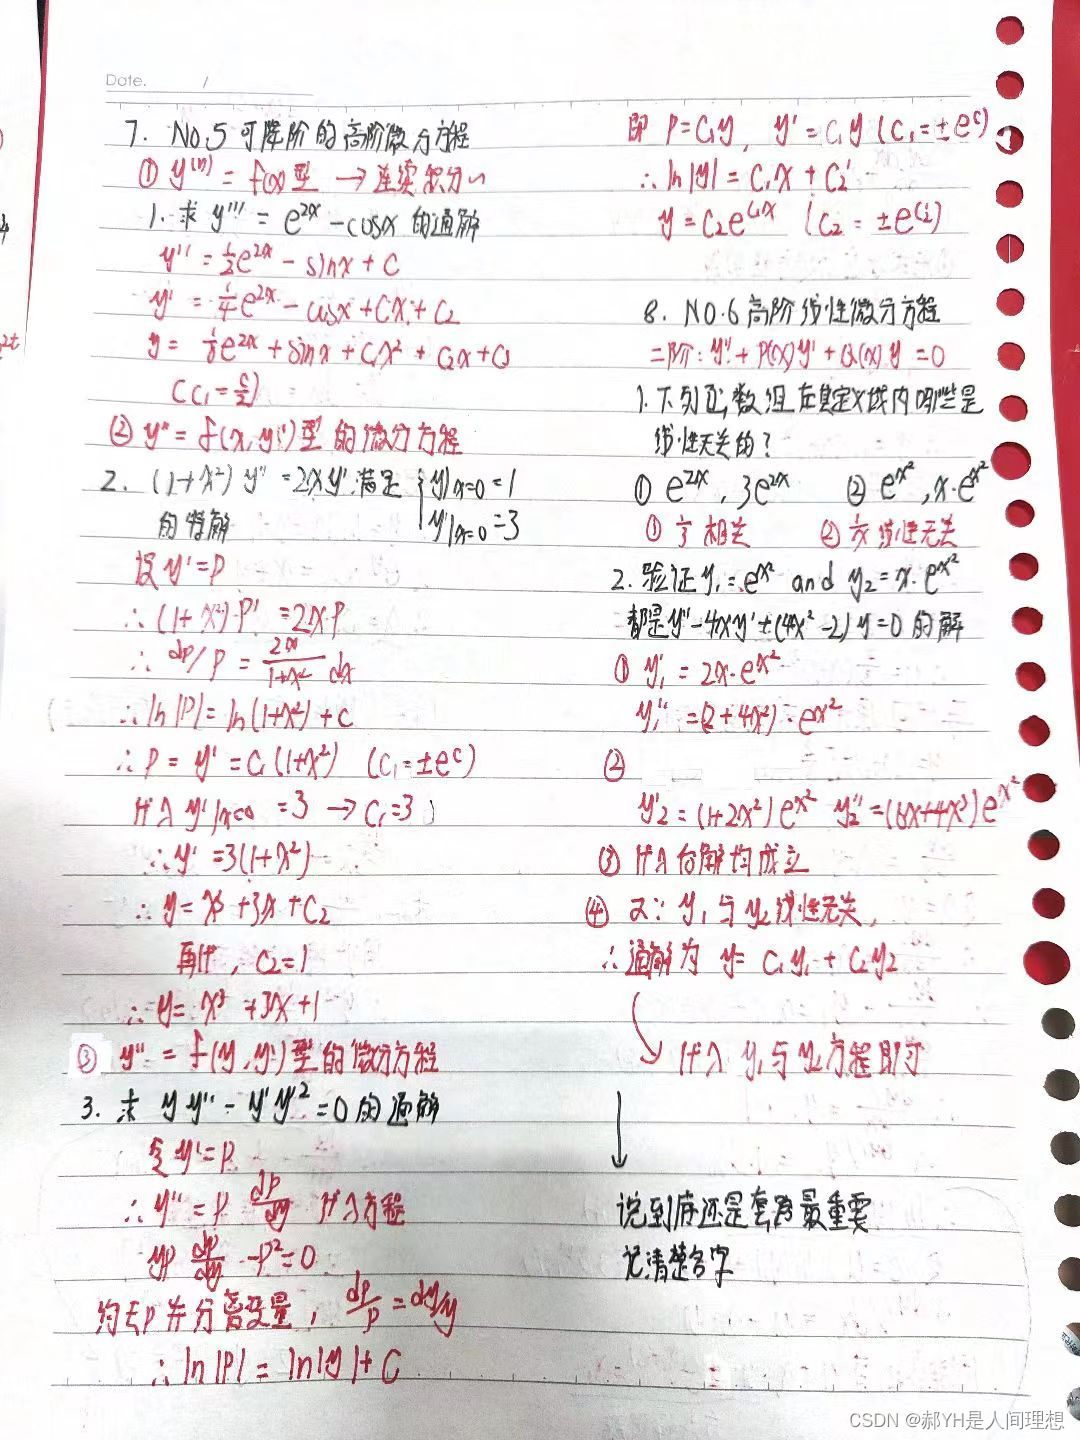 Date. /
7. No.5 可降阶的高阶微分方程
① y⁽ⁿ⁾ = f(x)型 → 连续积分~
1. 求 y''' = e²ˣ - cosx 的通解
y'' = ½e²ˣ - sinx + C
y' = ¼e²ˣ - cosx + Cx + C₂
y = ⅛e²ˣ + sinx + C₁x² + C₂x + C₃
(C₁ = C/2)
② y'' = f(x,y')型的微分方程
2. (1+x²)y'' = 2xy' 满足 { y|x=0 = 1
的特解 y'|x=0 = 3
设 y' = P
∴ (1+x²)·P' = 2x·P
∴ dP/P = 2x/(1+x²) dx
∴ ln|P| = ln(1+x²) + C
∴ P = y' = C₁(1+x²) (C₁ = ±eᶜ)
代入 y'|x=0 = 3 → C₁ = 3
∴ y' = 3(1+x²)
∴ y = x³ + 3x + C₂
再代, C₂ = 1
∴ y = x³ + 3x + 1
③ y'' = f(y,y')型的微分方程
3. 求 y y'' - y'y'² = 0 的通解
令 y' = P
∴ y'' = P dP/dy 代入方程
yP dP/dy - P² = 0
约去P并分离变量, dP/P = dy/y
∴ ln|P| = ln|y| + C
即 P = C₁y, y' = C₁y (C₁ = ±eᶜ)
∴ ln|y| = C₁x + C₂'
y = C₂e^C₁x (C₂ = ±e^C₂')
8. No.6 高阶线性微分方程
二阶: y'' + P(x)y' + Q(x)y = 0
1. 下列函数组在其定义域内哪些是
线性无关的?
① e²ˣ, 3e²ˣ ② e^x², x·e^x²
① 相关 ② 线性无关
2. 验证 y₁ = e^x² and y₂ = x·e^x²
都是 y'' - 4xy' + (4x² - 2)y = 0 的解
① y₁' = 2x·e^x²
y₁'' = (2 + 4x²)·e^x²
②
y₂' = (1+2x²)e^x² y₂'' = (6x+4x³)e^x²
③ 代入台解均成立
④ 又∵ y₁与y₂线性无关,
∴ 通解为 y = C₁y₁ + C₂y₂
代入 y₁与y₂方程即可
说到底还是套路最重要
记清楚名字
CSDN @郝YH是人间理想